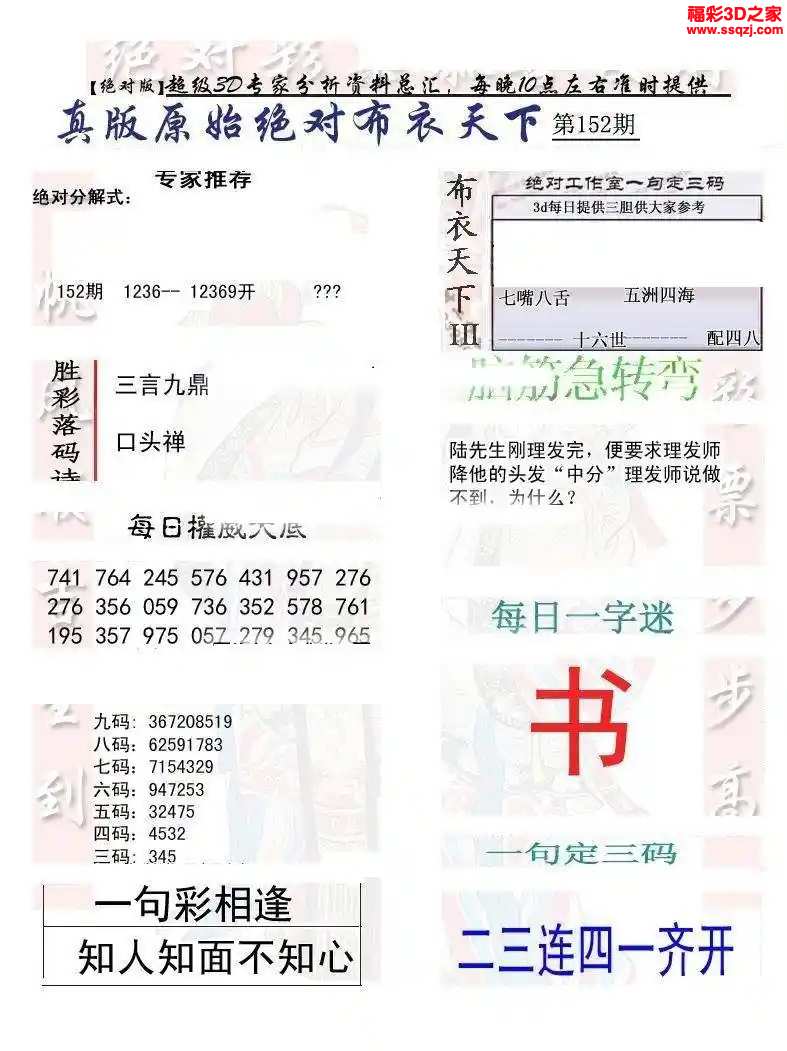 福彩3D之家
www.ssqzj.com
【绝对版】超级3D专家分析资料总汇，每晚10点左右准时提供
真版原始绝对布衣天下 第152期
专家推荐
绝对分解式：
152期 1236-- 12369开 ???
胜彩落码诗
三言九鼎
口头禅
每日權威大底
741 764 245 576 431 957 276
276 356 059 736 352 578 761
195 357 975 057 279 345 965
九码: 367208519
八码: 62591783
七码: 7154329
六码: 947253
五码: 32475
四码: 4532
三码: 345
一句彩相逢
知人知面不知心
布衣天下III
绝对工作室一句定三码
3d每日提供三胆供大家参考
七嘴八舌 五洲四海
------- 十六世------- 配四八
脑筋急转弯
陆先生刚理发完，便要求理发师
降他的头发“中分”理发师说做
不到，为什么?
每日一字迷
书
一句定三码
二三连四一齐开